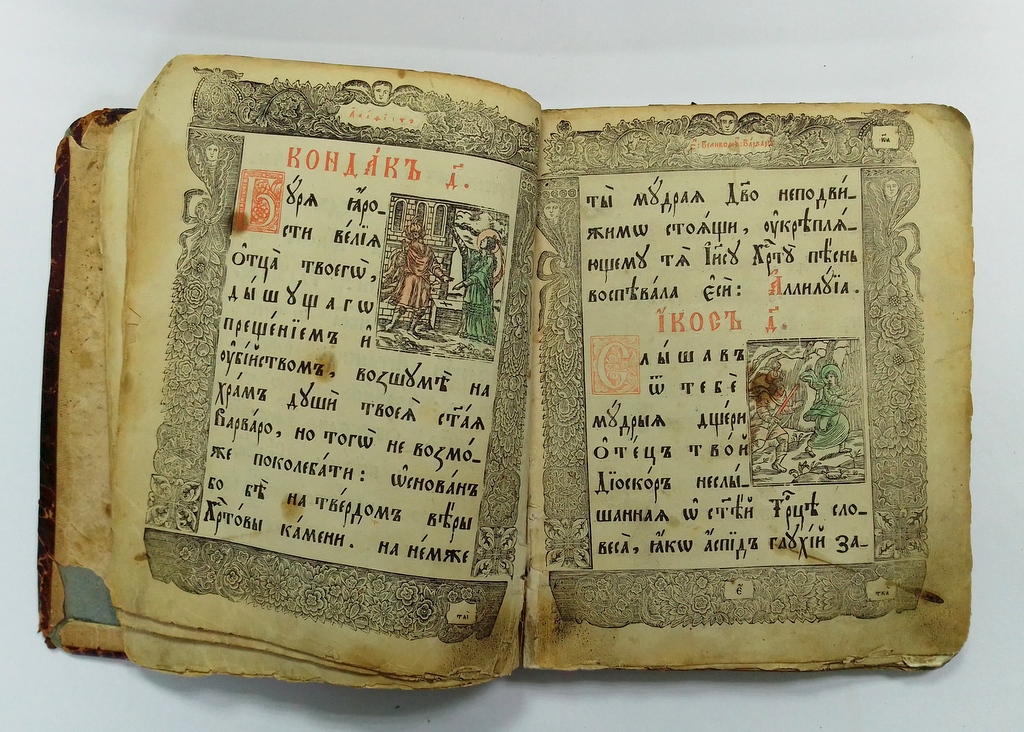 Акафістъ
КОНДА́КЪ д҃.
Бу́ря ꙗ҆́ро-
сти ве́лїѧ
Ѻ҆тца̀ твоегѡ̀,
ды́шущагѡ
преще́нїемъ и҆
ᲂу҆бі́йствомъ, возшумѣ̀ на
хра́мъ душѝ твоеѧ̀ ст҃а́ѧ
Варва́ро, но тогѡ̀ не возмо́-
же поколеба́ти: ѡ҆снова́нъ
бо бѣ̀ на тве́рдомъ вѣ́ры
Хр҃то́вы ка́мени. на не́мже
Варвар
ты̀ мꙋ́драѧ Дв҃о неподви́-
жимѡ стоѧ́щи, ᲂу҆крѣплѧ́-
ющему тѧ̀ І҆и҃су Хр҃ту̀ пѣ́снь
воспѣва́ла є҆сѝ: А҆ллилꙋ́їа.
І҆́КОСЪ д҃.
Слы́шавъ
ѿ тебє̀
мꙋ́дрыѧ дще́ри
Ѻ҆те́цъ тво́й
Дїоско́ръ неслы́-
шанная ѡ҆ ст҃ѣ́й Трⷪ҇цѣ сло-
веса̀, ꙗ҆́кѡ а҆́спїдъ глухі́й за-